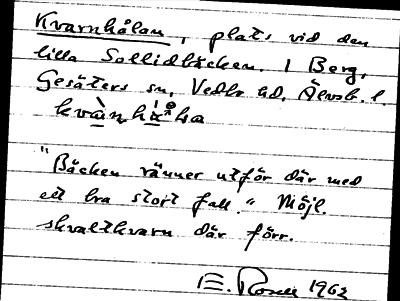 Kvarnhålan, plats vid den
lilla Sollidbäcken. I Berg,
Gesäters sn, Vedbo hd, Älvsb. l.
"Bäcken ränner utför där med
ett bra stort fall." Möjl.
skvaltkvarn där förr.
E. Rosen 1962